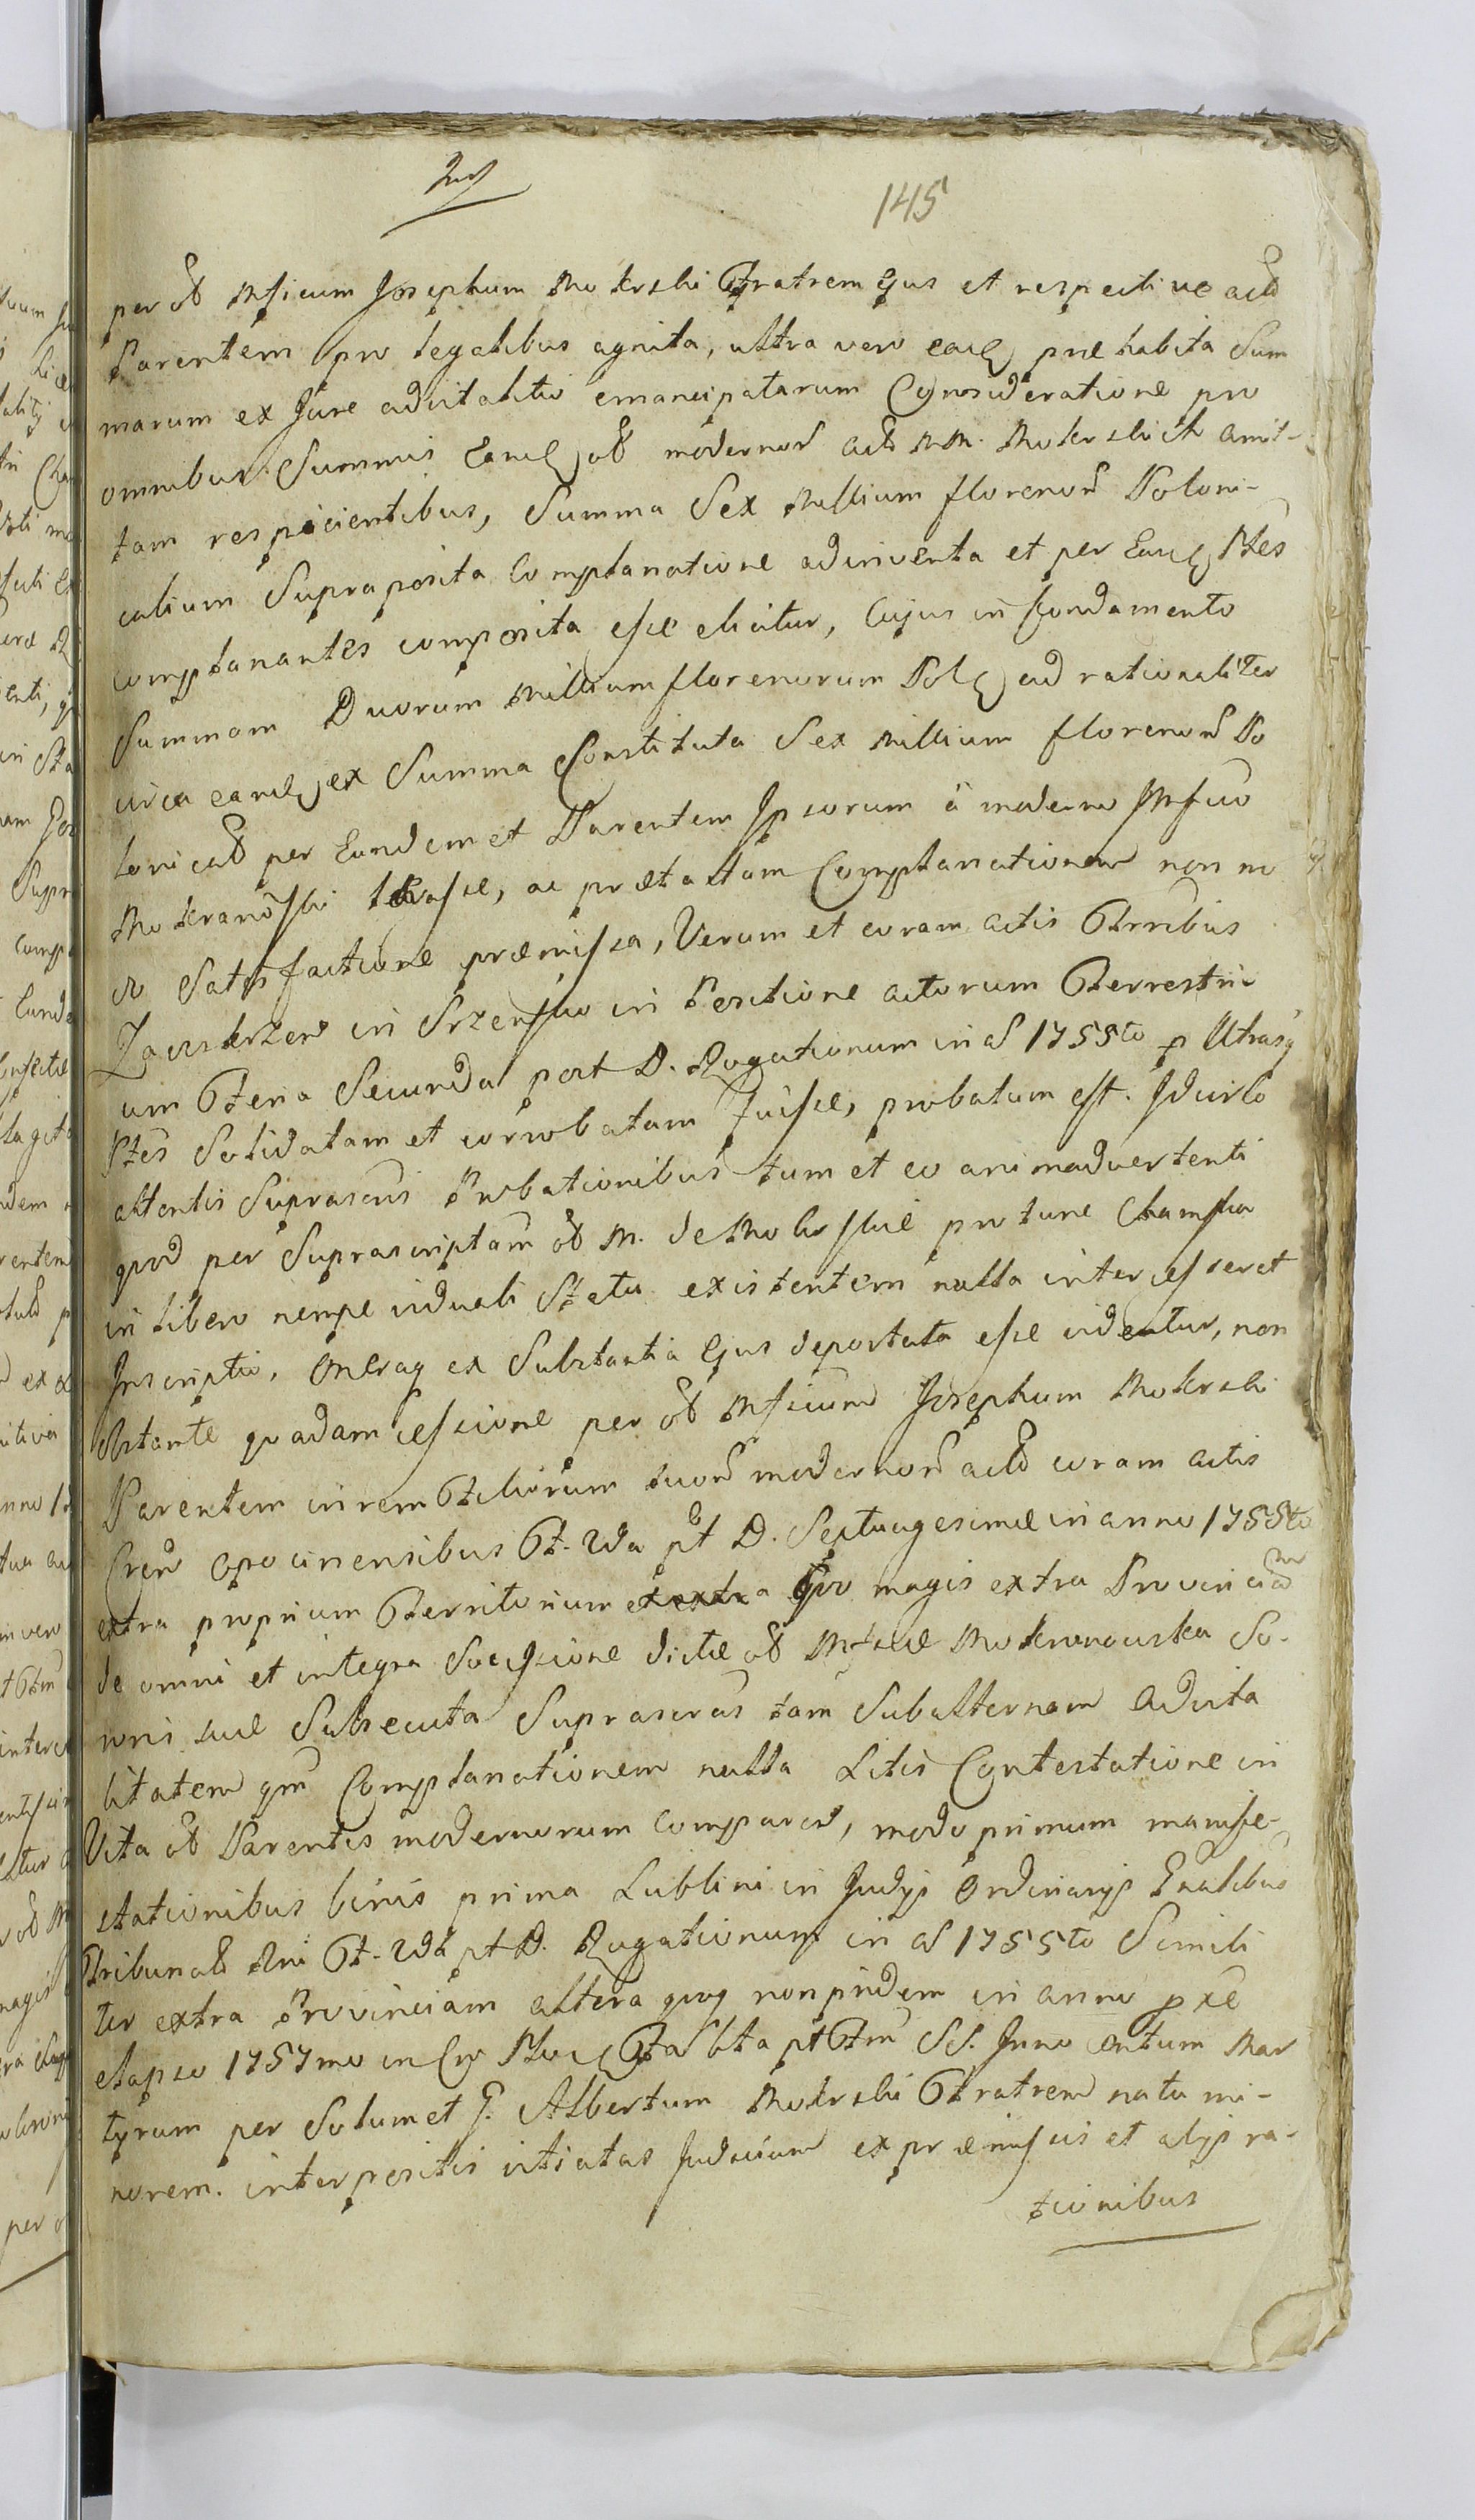 145
per Mficum Josephum Mokrski Fratrem Ejus et respective
Parentem pro legalibus agnita, ultra vero prae habita Sum
marum ex Jure advitalitio emancipatarum Consideratione pro
omnibus Summis modernor MM. Mokrskich amit-
tam respicientibus, Summa Sex Millium florenor Poloni-
calium Supraposita Complanatione adinventa et per Ptes
complanantes composita esse elicitur, Cujus in fundamento
Summam Duorum Millium florenorum Pol rationaliter
circa ex Summa Constituta Sex Millium florenor Po
per Eundemet Parentem Ipsorum à moderno Mfico
Mokranoski levasse, ac praetactam Complanationem non mo
do Satisfactione praemissa, Verum et coram actis Trribus
in positione actorum Terrestri
um Feria Secunda post D. Rogationum in A 1755to p Utrasq
Ptes Solidatam et corrobatam fuisse, probatum est. Idcirco
attentis suprascris Probationibus tum et eo animadvertenti
quod per Suprascriptam M. de Mokrskie pro tunc
in libero nempe viduali Statu existentem nulla intercesseret
Inscriptio, Oneraq ex Substantia Ejus deportata esse videntur, non
obstante quadam cessione per Mficum Josephum Mokrski
Parentem in rem Filiorum suor modernor coram actis
Opocinensibus F. 2da pt D. Septuagesimae in anno 1755to
extra proprium Territorium quo magis extra Provincia
de omni et integra Successione dictae Mokronowska So-
roris suae Subsecuta Suprascras tam Subalternam Advita
litatem qm Complanationem nulla Litis Contestatione in
Vita Parentis modernorum comparen, modo primum manife-
stationibus binis prima Lublini in Judijs Ordinarijs Gnalibus
Tribunal Rni F. 2da pt D. Rogationum in A 1755to Simili
ter extra Provinciam altera quoq non pridem in anno pxe
elapso 1757mo in pt Ftm SS. Innocentum Mar
tyrum per Solumet G. Albertum Mokrski Fratrem natu mi-
norem. interpositis vitiatas Judicium ex praemissis et alijs ra-
tionibus